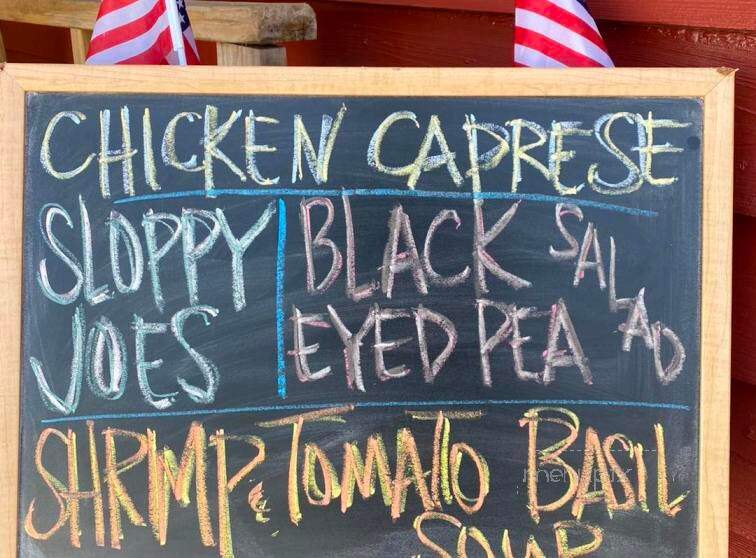 CHICKEN CAPRESE
SLOPPY JOES
BLACK EYED PEA SALAD
SHRIMP & TOMATO BASIL
SOUP
menupix